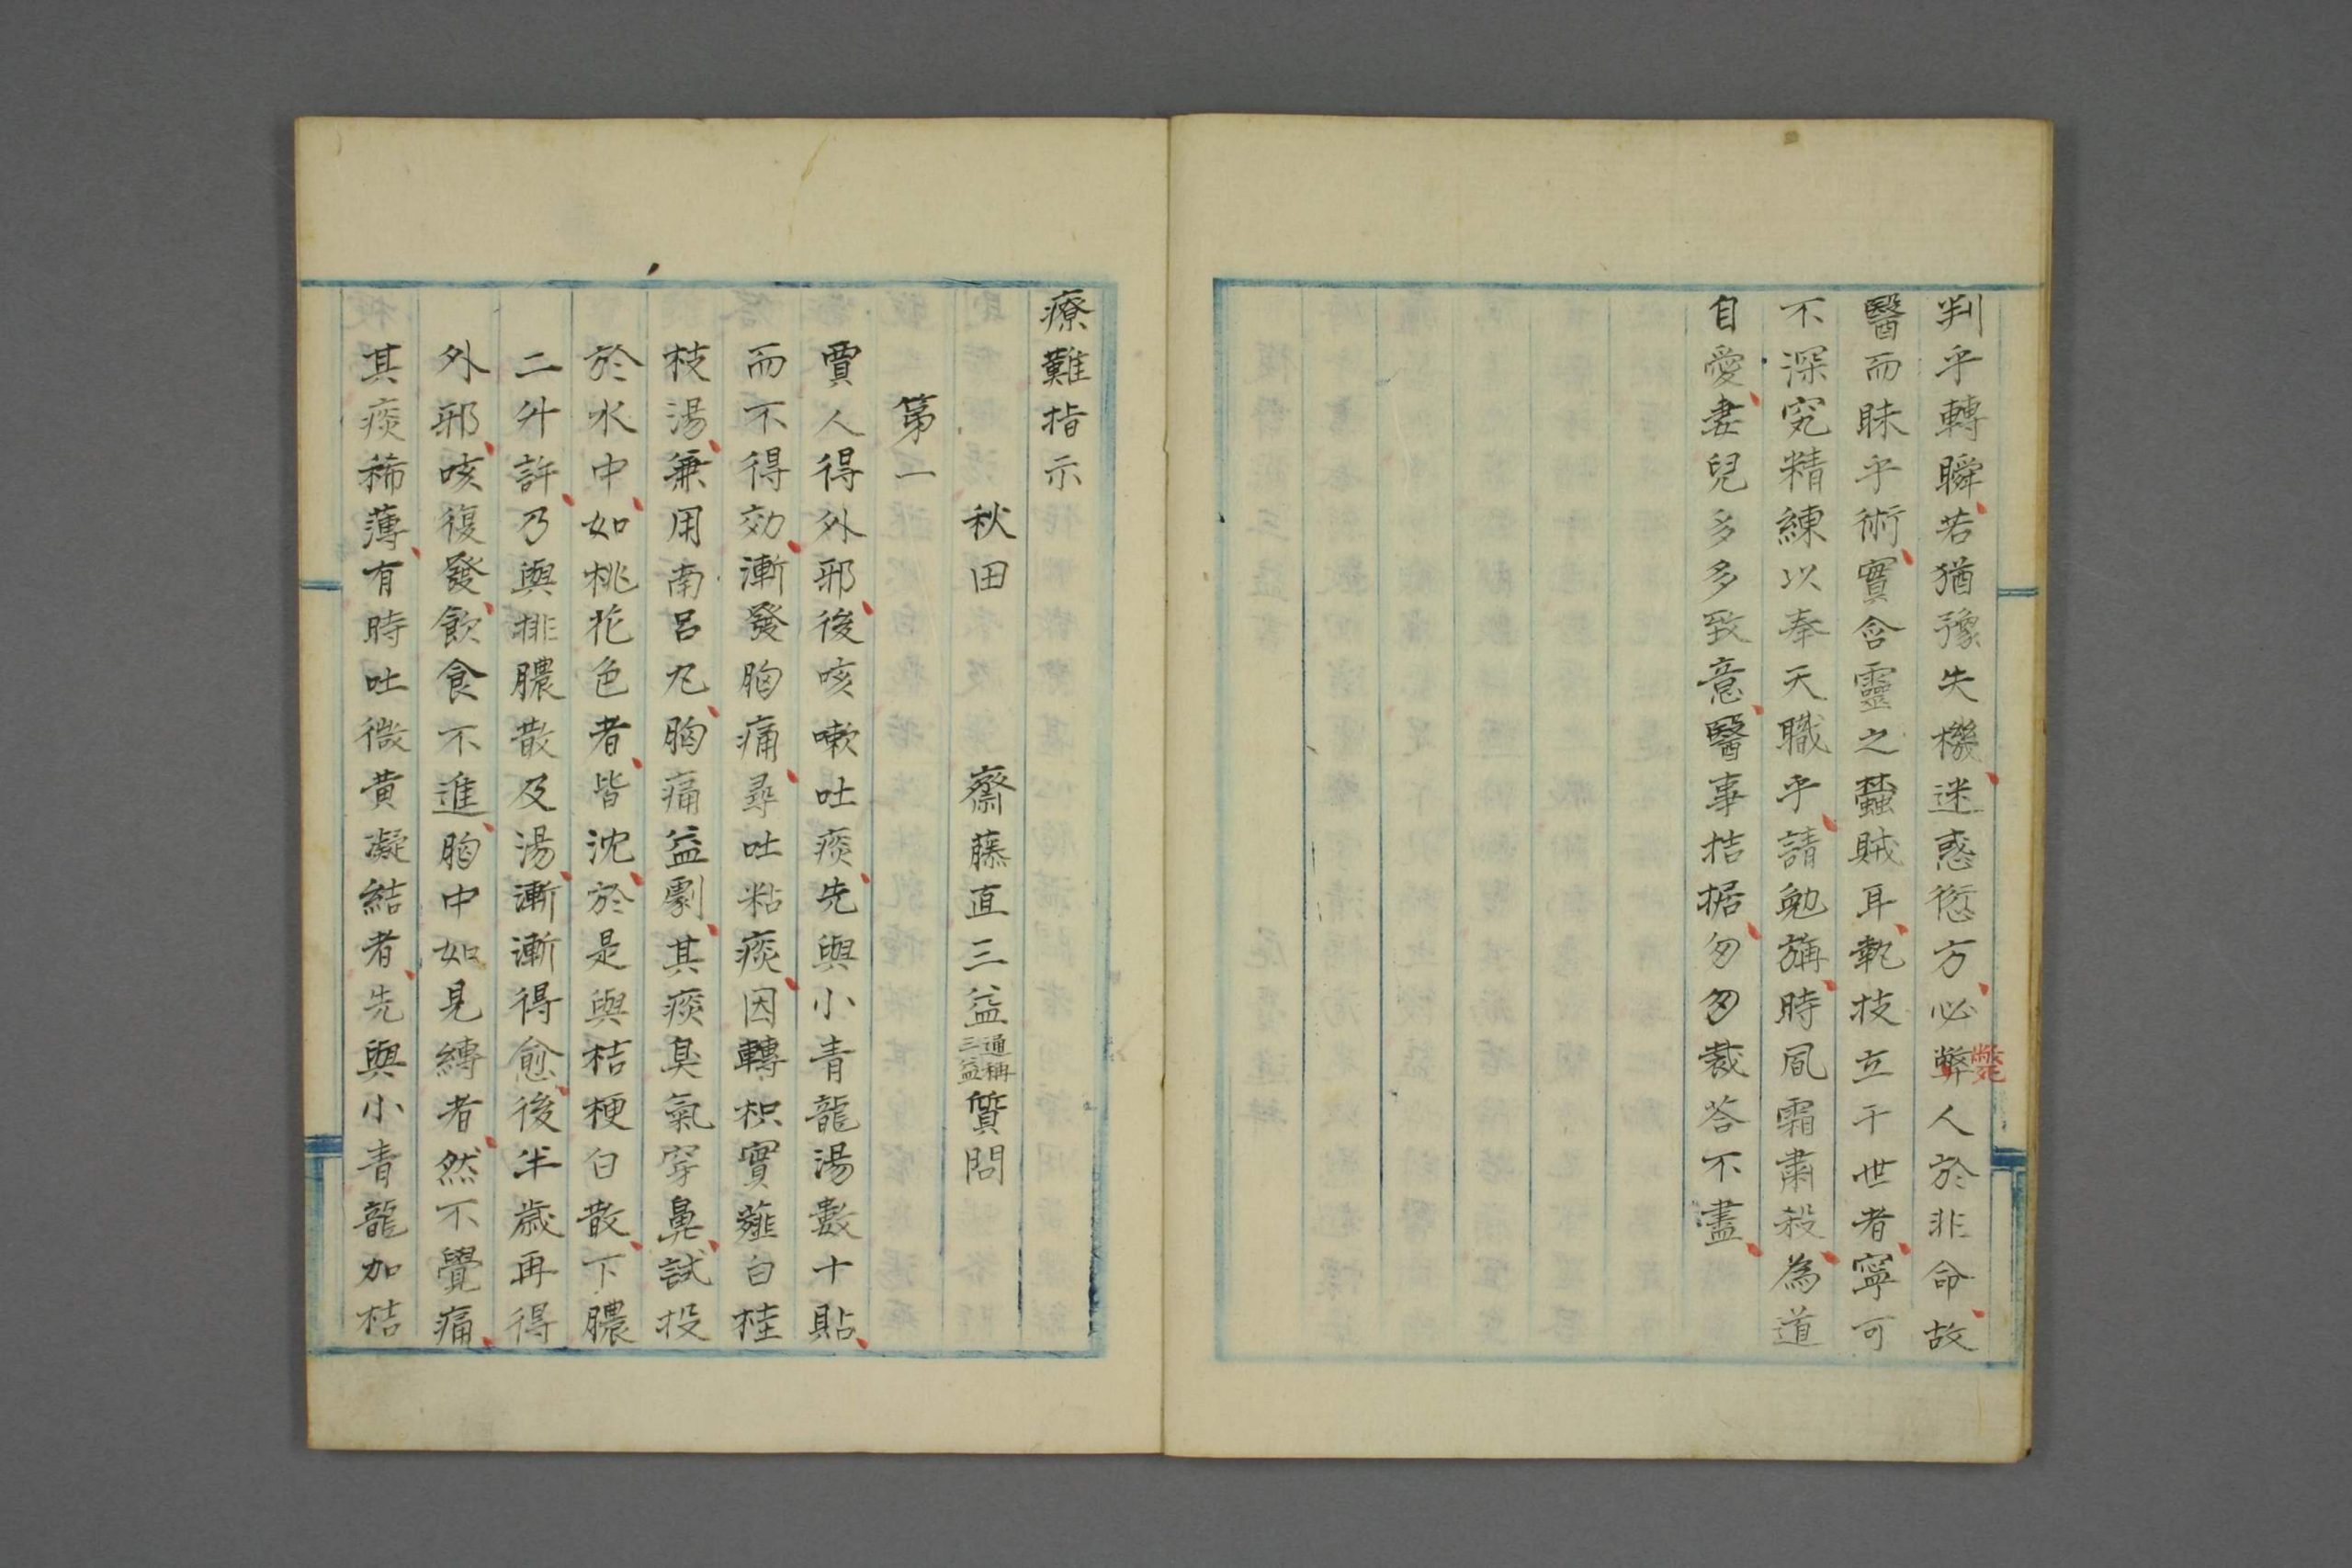 判乎轉瞬若猶豫失機迷惑愆方必弊人於非命故
斃
醫而昧乎術實含靈之蠧賊耳執技立于世者寧可
不深究精練以奉天職乎請勉旃時風霜肅殺為道
自愛妻兒多多致意醫事拮据匆匆裁荅不盡
療難指示
秋田 齋藤直三益通稱三益質問
第一
賈人得外邪後咳嗽吐痰先與小青龍湯數十貼
而不得効漸發胸痛尋吐粘痰因轉枳實薤白桂
枝湯兼用南呂丸胸痛益劇其痰臭氣穿鼻試投
於水中如桃花色者皆沈於是與桔梗白散下膿
二升許乃與排膿散及湯漸漸得愈後半歳再得
外邪咳復發飲食不進胸中如見縛者然不覺痛
其痰稀薄有時吐微黄凝結者先與小青龍加桔